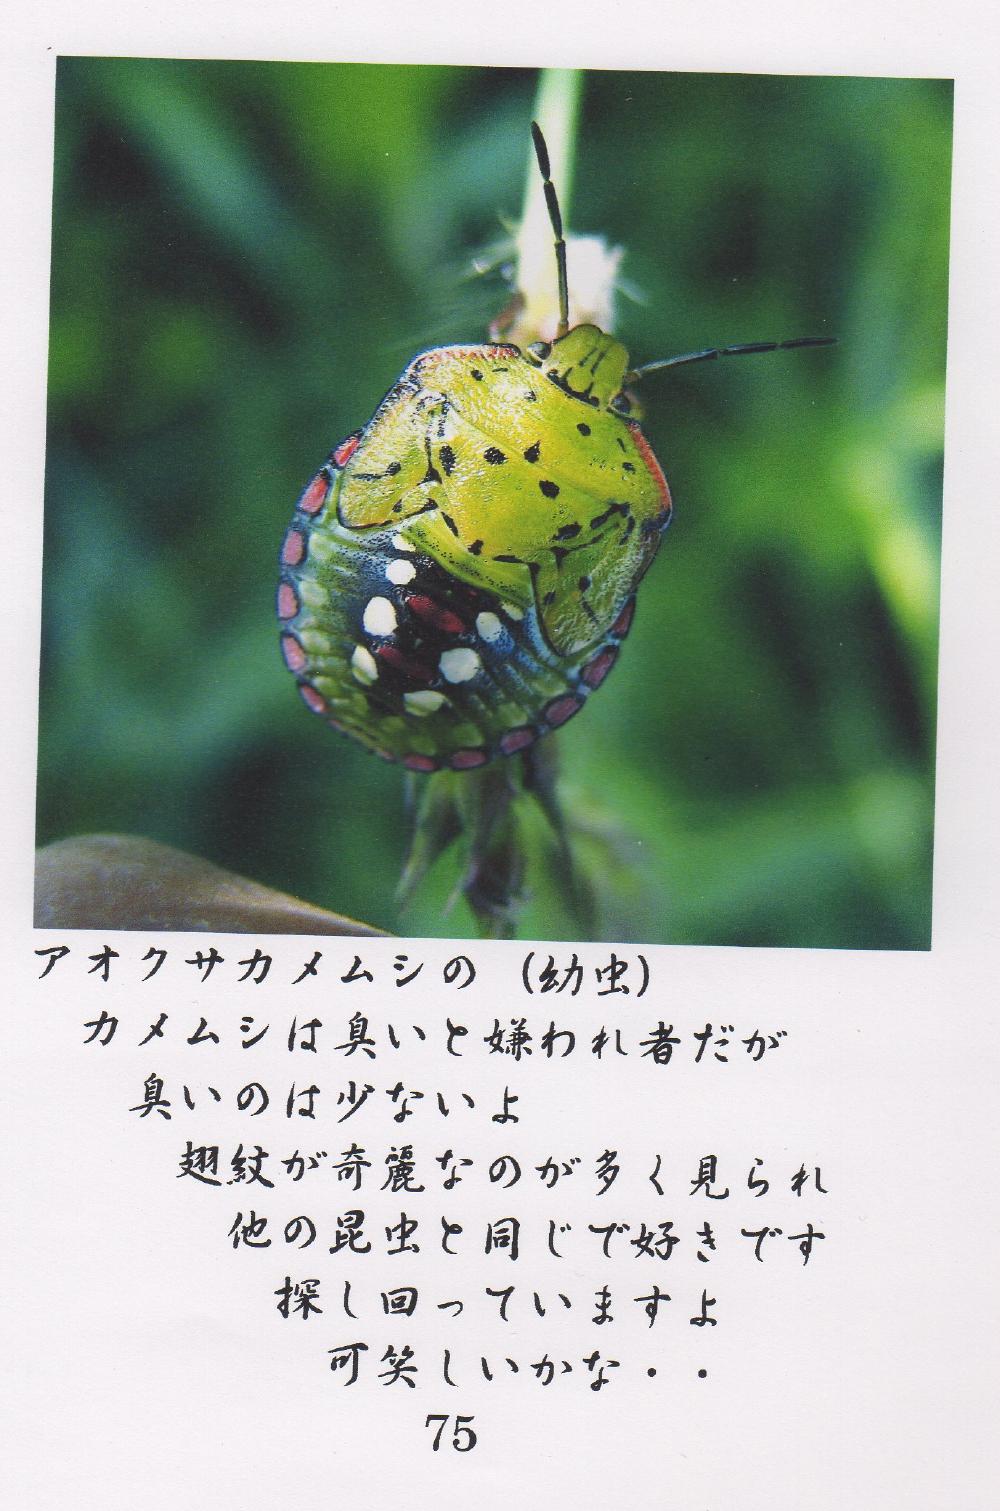 アオクサカメムシの（幼虫）
カメムシは臭いと嫌われ者だが
臭いのは少ないよ
翅紋が奇麗なのが多く見られ
他の昆虫と同じで好きです
探し回っていますよ
可笑しいかな・・
75